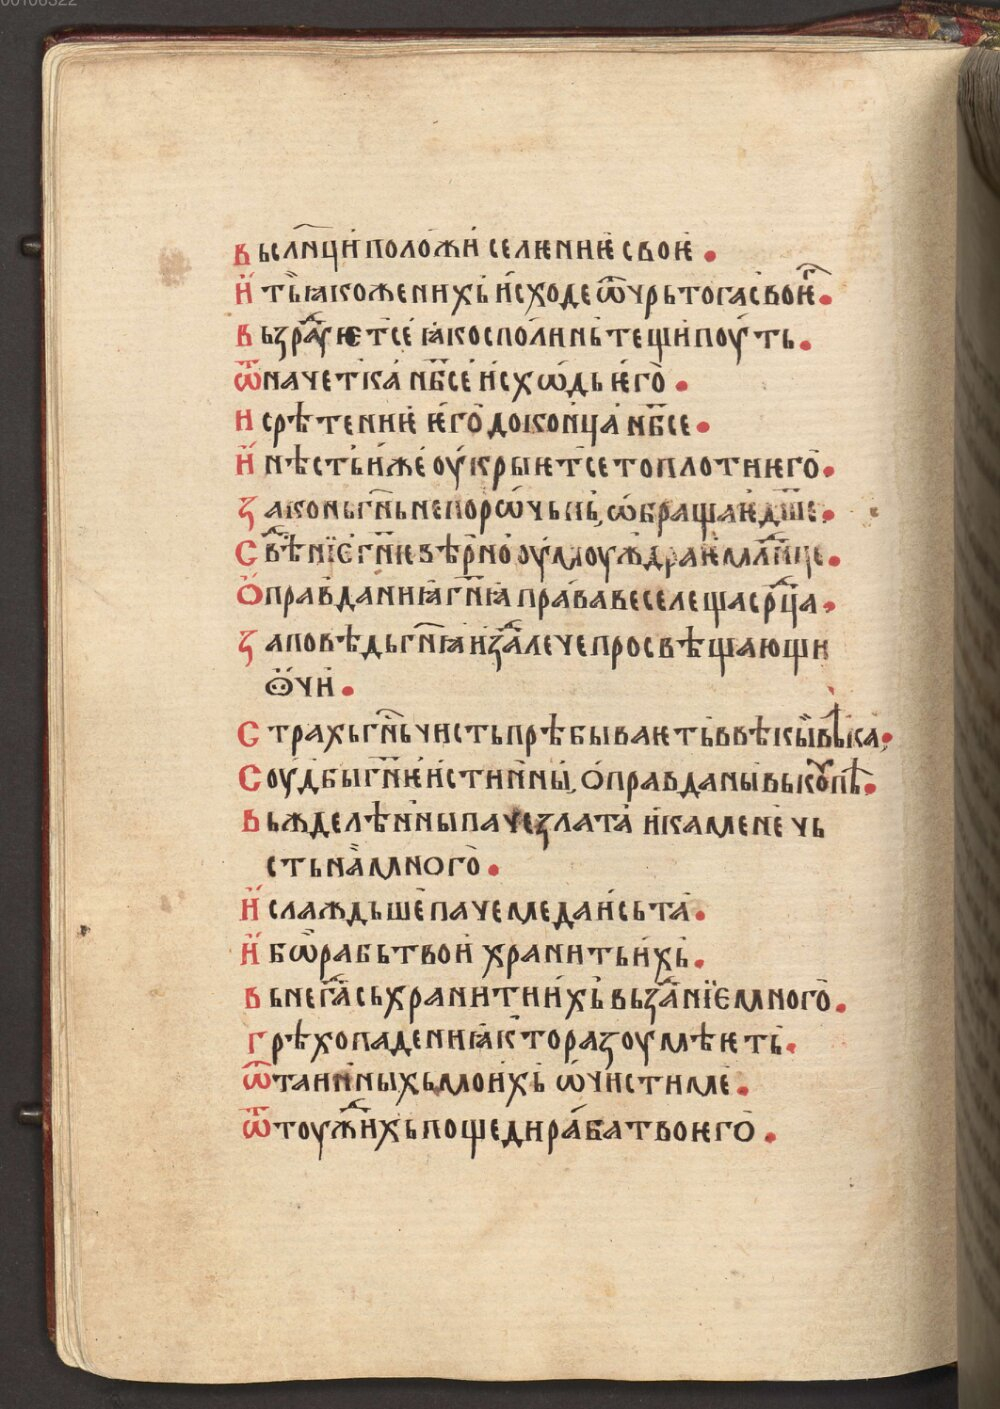 Вь сл҃нци положи селѥниѥ своѥ •
И тъ ꙗко женихь исходе ѿ чрьтога своѥг҇ •
Вьзрад҇уѥт се ꙗко сполинь тещи поуть •
Ѿ начетка нб҃се исхѡдь ѥго •
И срѣтениѥ ѥго до конца нб҃се •
И нѣсть иже оукрыѥт се топлоти ѥго •
Законь гн҃ь непорѡчьнь, ѡбращаѥ дш҃е •
Свѣд҇нїе гн҃ѥ вѣрно оумоуждраѥ млад҇нце •
Оправданиꙗ гн҃ꙗ права веселеща срц҃а •
Заповѣдь гн҃ꙗ издал҇ече просвѣщающи
ѡчи •
Страхь гн҃ь чисть прѣбываѥть въ вѣкы вѣка •
Соудбы гн҃ѥ истинны, оправданы вькоупѣ •
Вьжделѣнны паче злата и камене чь
стьна много •
И слаждьше паче меда и сьта •
И бѡ рабь твои хранить ихь •
Вьнегд҇а сьхранити ихь вьзд҇анїе много •
Грѣхопадениꙗ кто разоумѣѥть •
Ѿ таинныхь моихь ѡчисти ме •
Ѿ тоужд҇ихь пощеди раба твоѥго •